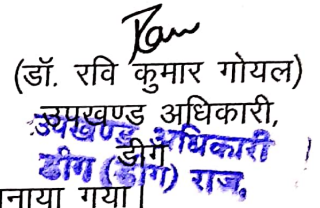 (डॉ. रवि कुमार गोयल)
उपखण्ड अधिकारी,
डीग
उपखण्ड अधिकारी
डीग (डीग) राज.
नाया गया।